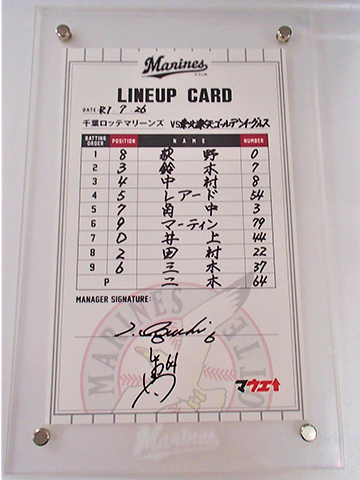 Marines
LINEUP CARD
DATE: R1 7 26
千葉ロッテマリーンズ VS 東北楽天ゴールデンイーグルス
BATTING ORDER POSITION NAME NUMBER
1 8 荻野 0
2 3 鈴木 7
3 4 中村 8
4 5 レアード 54
5 7 角中 3
6 9 マーティン 79
7 D 井上 44
8 2 田村 22
9 6 三木 37
P 二木 64
MANAGER SIGNATURE:
64
マウエ↑
MARINES
Marines